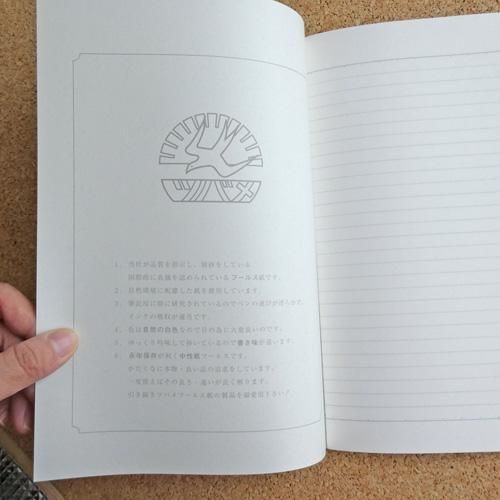 ツバメ
1. 当社が品質を指示し、別抄をしている
国際的に真価を認められているフールス紙です。
2. 自然環境に配慮した紙を使用しています。
3. 筆記用に特に研究されているのでペンの運びが滑らかで、
インクの吸収が適当です。
4. 色は自然の白色なので目の為に大変良いのです。
5. ゆっくり吟味して抄いているので書き味が違います。
6. 永年保存が利く中性紙フールスです。
かたくなに本物・良い品の追求をしています。
一度使えばその良さ・違いが良く解ります。
引き続きツバメフールス紙の製品を御愛用下さい。